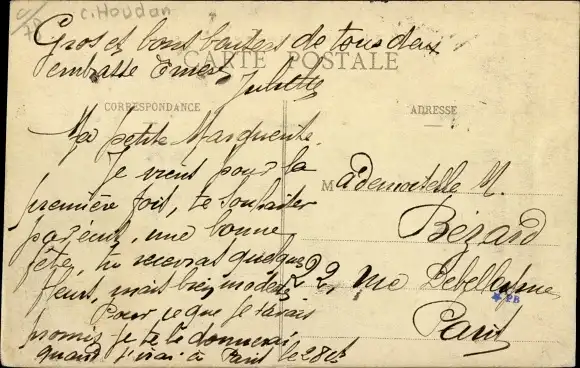 c. Houdan
Gros et bons baisers de tous deux
embrasse Ernest
Juliette
CARTE POSTALE
CORRESPONDANCE
ADRESSE
Ma petite Marguerite,
Je vient pour la
première fois, te souhaiter
par écrit, une bonne
fête, tu recevras quelques
fleurs, mais bien modestes
Pour ce que je t'avais
promis je te le donnerai
quand j'irai à Paris le 28 ct
Mademoiselle M.
Bézard
22 rue Debelleyme
PB
Paris